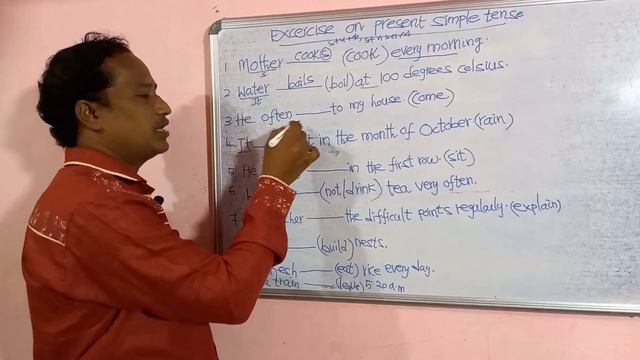 Excercise on present simple tense
1 Mother cooks (cook) every morning.
s
2. Water boils (boil) at 100 degrees celsius.
It
3. He often ____ to my house. (come)
4. It ____ t in the month of October (rain)
5 He ____ in the first row. (sit)
6 ____ (not/drink) tea very often.
7 her ____ the difficult points regularly. (explain)
____ (build) nests.
esh ____ (eat) rice every day.
train ____ (leave) 5 20 a.m